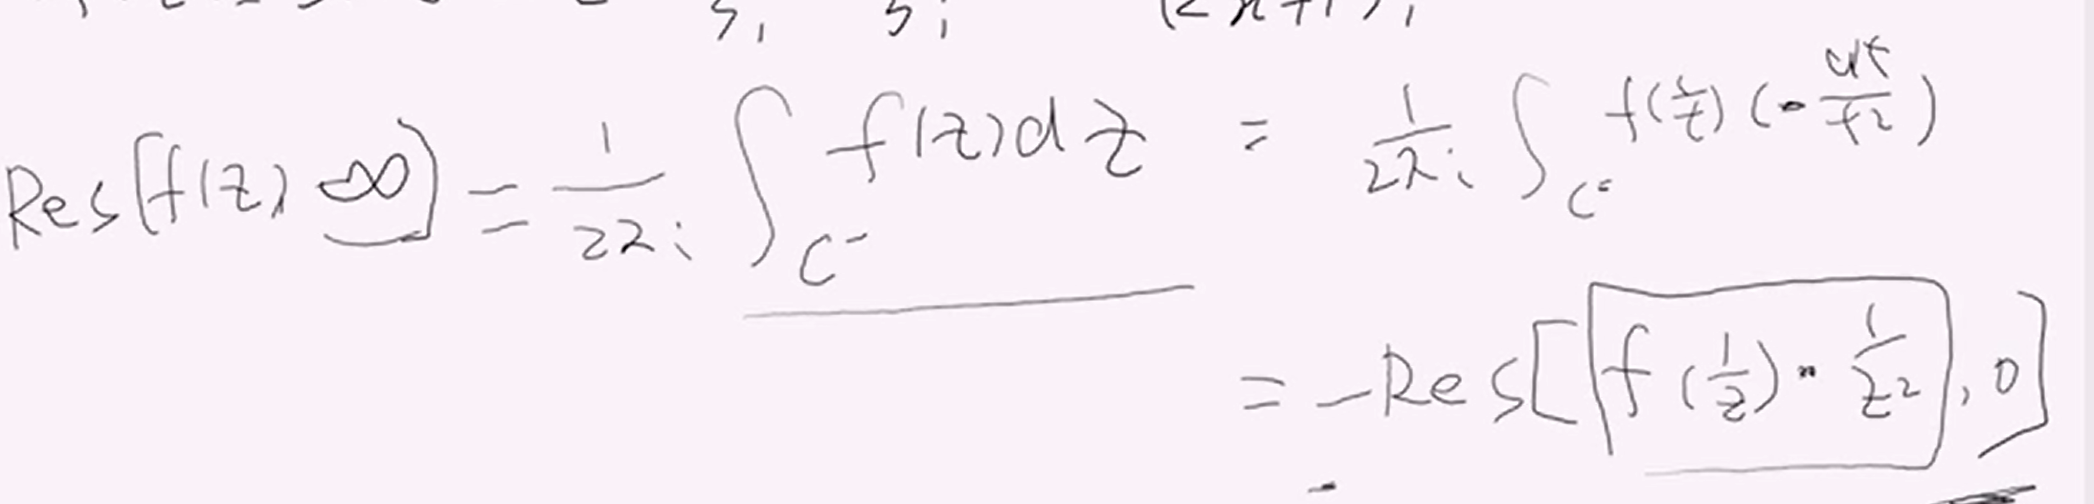 5! 5! (2n+1)!
Res[f(z), ∞] = \frac{1}{2πi} ∫_{C^-} f(z)dz = \frac{1}{2πi} ∫_{C^-} f(\frac{1}{t}) (-\frac{dt}{t^2})
= -Res[f(\frac{1}{z}) · \frac{1}{z^2}, 0]